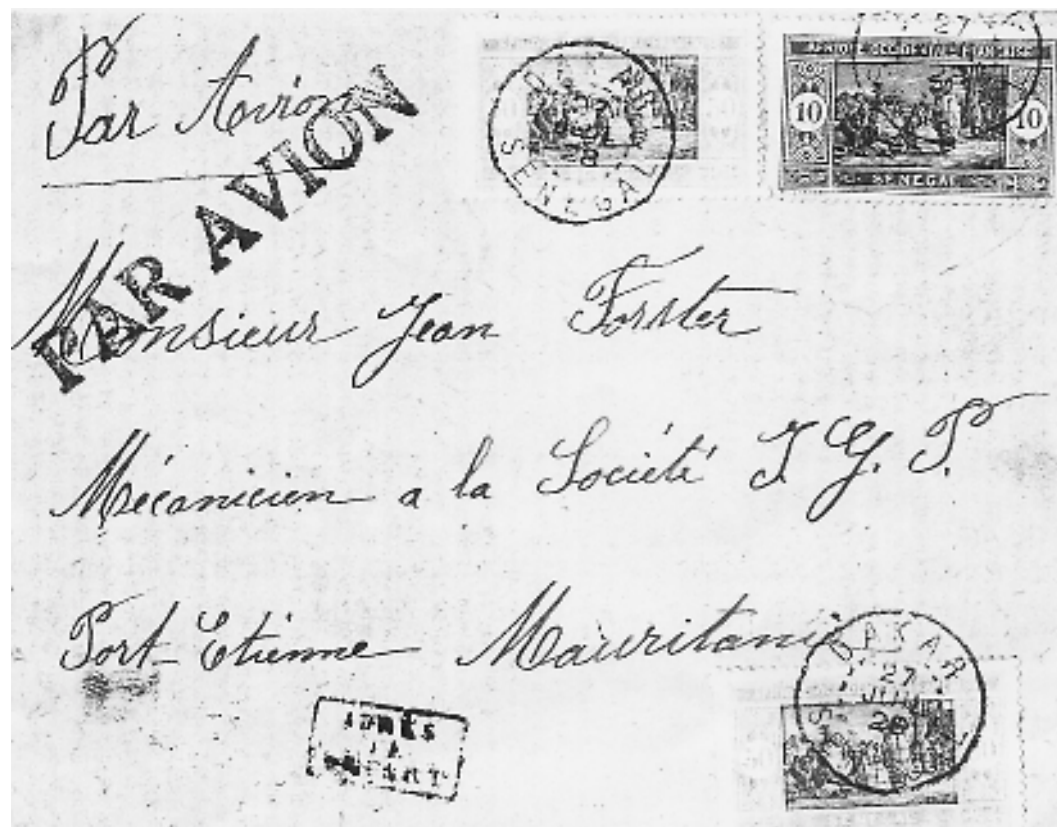 Par Avion
PAR AVION
DAKAR
SENEGAL
27
AFRIQUE OCCIDENTALE FRANÇAISE
10 10
SENEGAL
Monsieur Jean Forster
Mécanicien a la Société I. G. P.
Port-Etienne Mauritanie
APRÈS
LE
DÉPART
27
JUIN